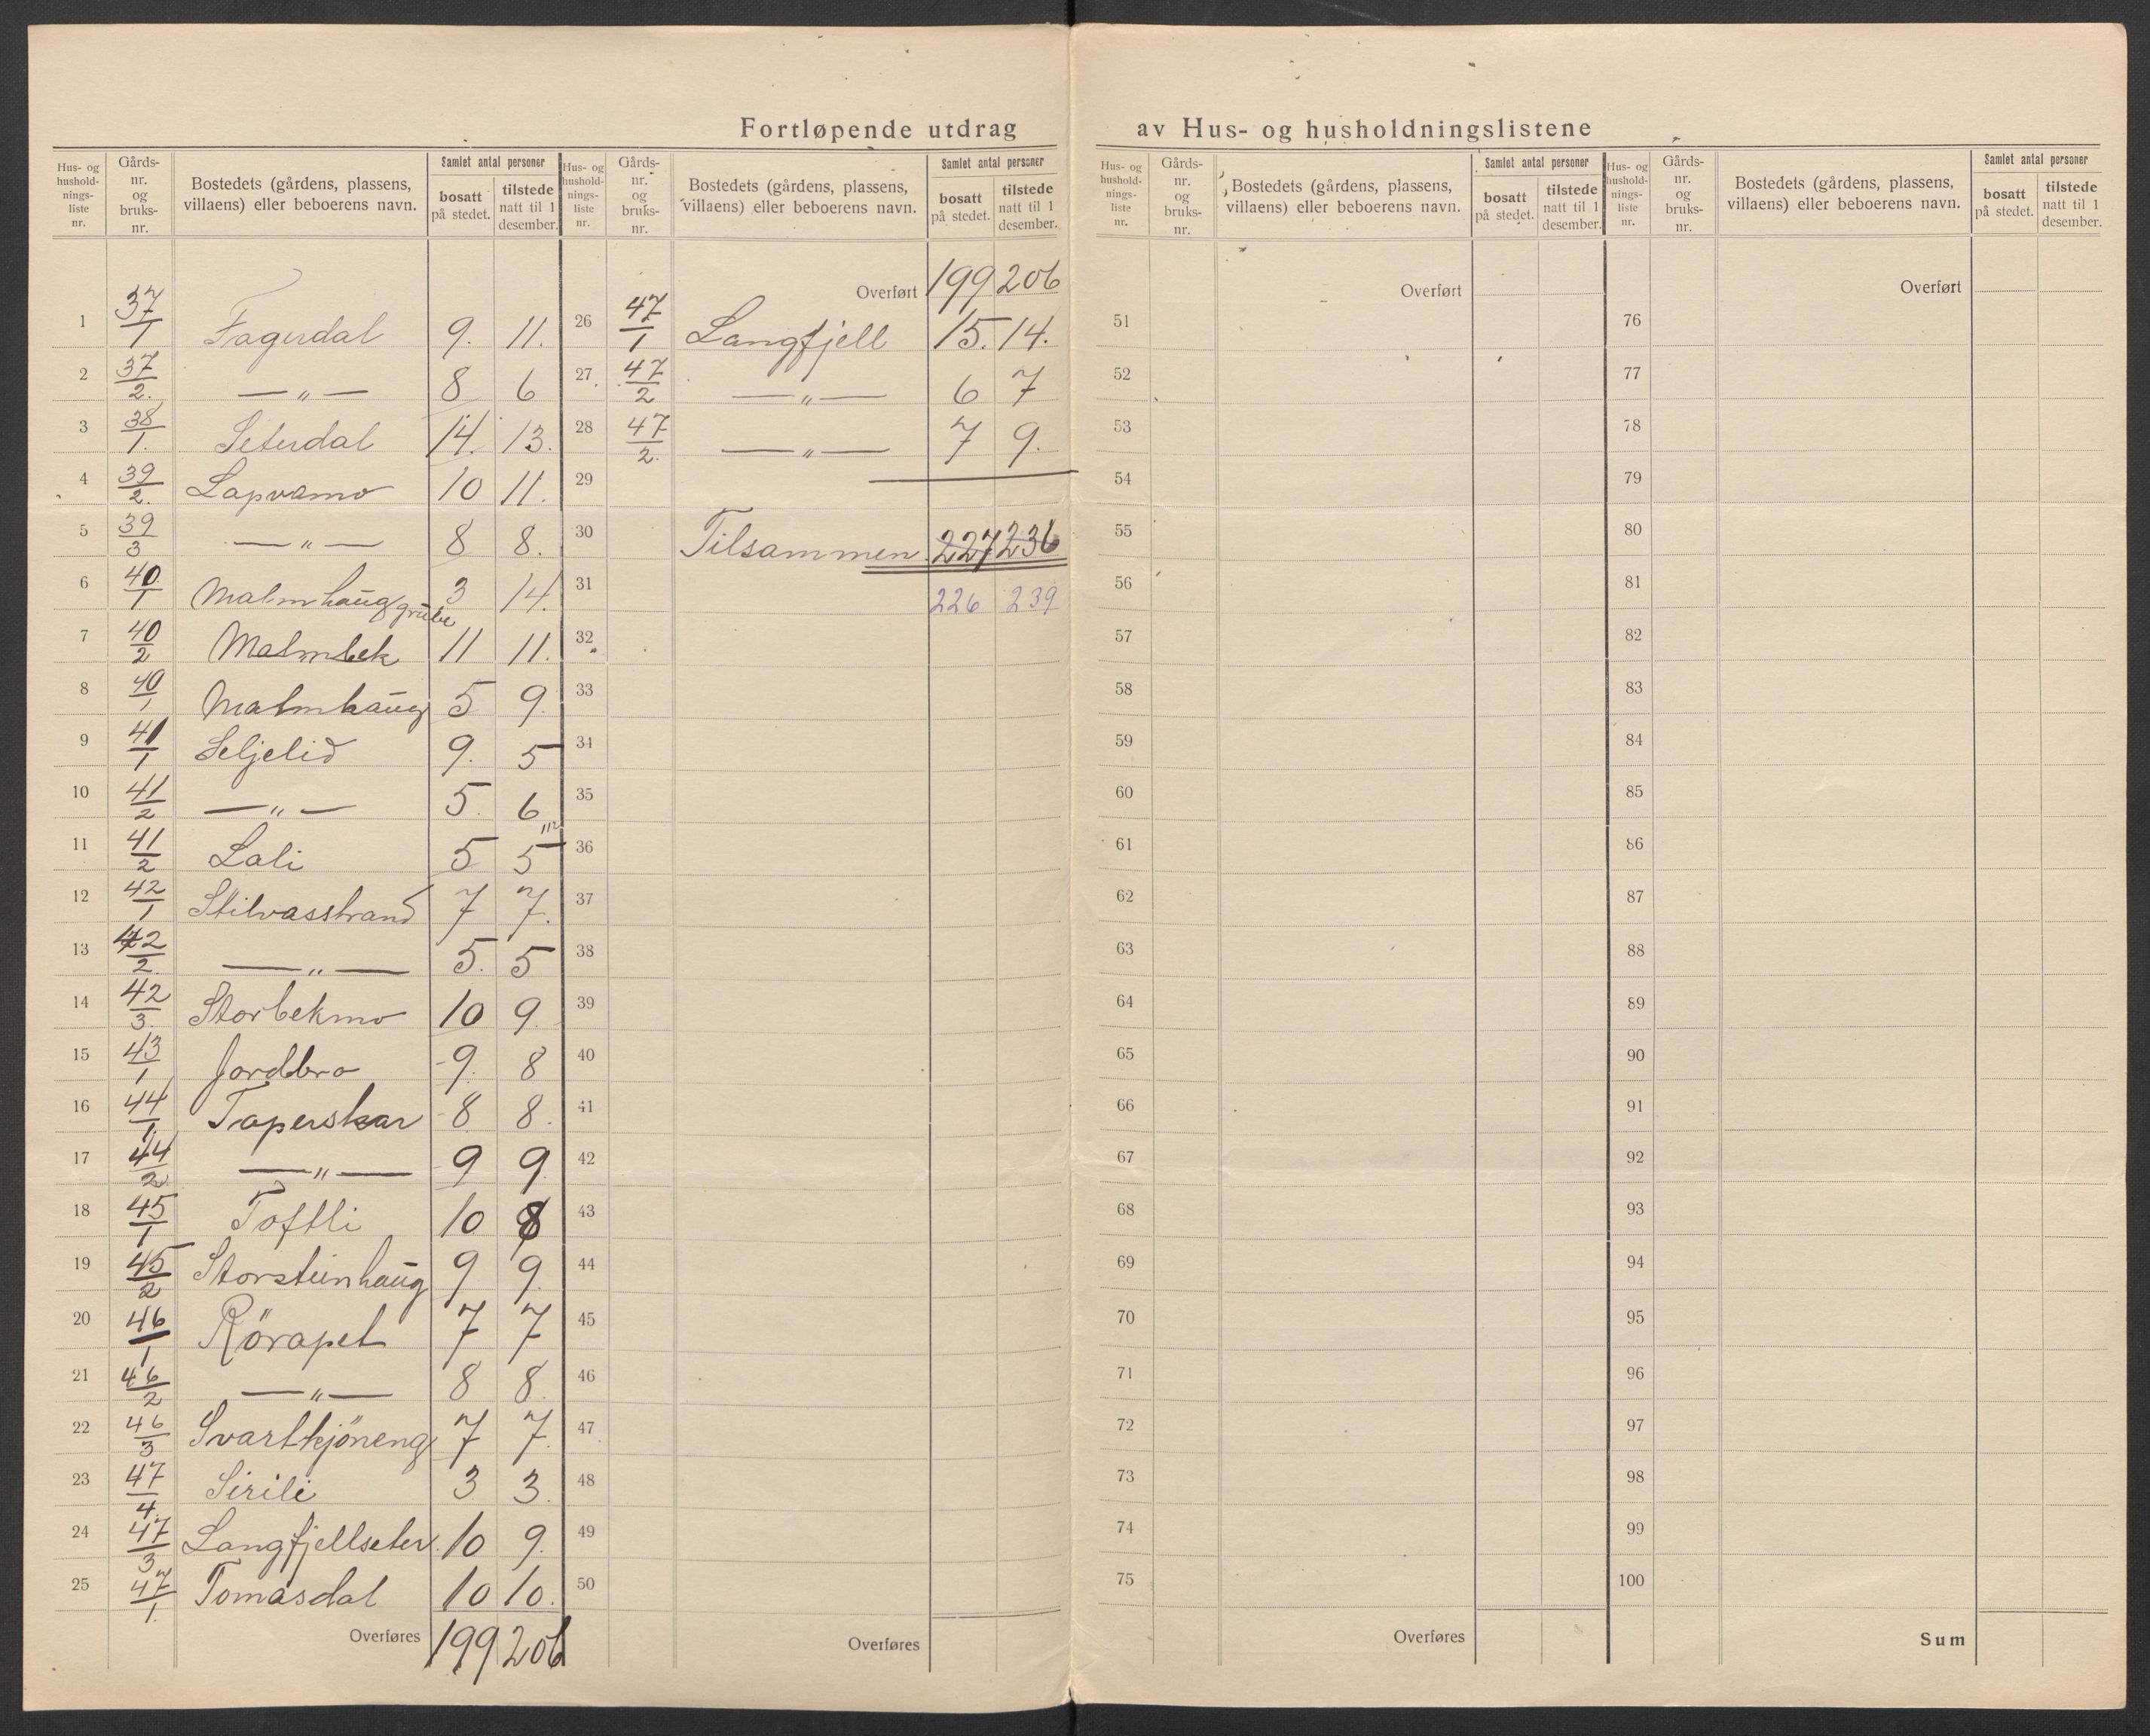 Fortløpende utdrag av Hus- og husholdningslistene
Hus- og hushold-nings-liste nr. | Gårds-nr. og bruks-nr. | Bostedets (gårdens, plassens, villaens) eller beboerens navn. | Samlet antal personer | bosatt på stedet. | tilstede natt til 1 desember.
1 37/1 Fagerdal 9. 11.
2 37/2. — „ — 8 6
3 38/1. Seterdal 14. 13.
4 39/2. Lapvamo 10 11.
5 39/3 — „ — 8 8.
6 40/1 Malmhaug grube 3 14.
7 40/2 Malmbek 11 11.
8 40/1 Malmhaug 5 9.
9 41/1 Seljelid 9. 5
10 41/2 — „ — 5. 6
112
11 41/2 Lali 5 5
12 42/1 Stilvasstrand 7 7.
13 42/2. — „ — 5. 5
14 42/3. Storbekmo 10 9.
15 43/1 Jordbro 9. 8
16 44/1. Taperskar 8 8.
17 44/2. — „ — 9 9
18 45/1 Toftli 10 8
19 45/2 Storsteinhaug 9 9.
20 46/1 Rörapet 7 7
21 46/2 — „ — 8 8.
22 46/3 Svarttkjöneng 7 7.
23 47/4. Sirili 3 3.
24 47/3 Langfjellseter. 10 9.
25 47/1. Tomasdal 10 10.
Overføres 199 206
Hus- og hushold-nings-liste nr. | Gårds-nr. og bruks-nr. | Bostedets (gårdens, plassens, villaens) eller beboerens navn. | Samlet antal personer | bosatt på stedet. | tilstede natt til 1 desember.
Overført 199 206
26 47/1 Langfjell 15. 14.
27 47/2 — „ — 6 7
28 47/2. — „ — 7 9.
29
30 Tilsammen 227 236
31 226 239
32
33
34
35
36
37
38
39
40
41
42
43
44
45
46
47
48
49
50
Overføres
Hus- og hushold-nings-liste nr. | Gårds-nr. og bruks-nr. | Bostedets (gårdens, plassens, villaens) eller beboerens navn. | Samlet antal personer | bosatt på stedet. | tilstede natt til 1 desember.
Overført
51
52
53
54
55
56
57
58
59
60
61
62
63
64
65
66
67
68
69
70
71
72
73
74
75
Overføres
Hus- og hushold-nings-liste nr. | Gårds-nr. og bruks-nr. | Bostedets (gårdens, plassens, villaens) eller beboerens navn. | Samlet antal personer | bosatt på stedet. | tilstede natt til 1 desember.
Overført
76
77
78
79
80
81
82
83
84
85
86
87
88
89
90
91
92
93
94
95
96
97
98
99
100
Sum